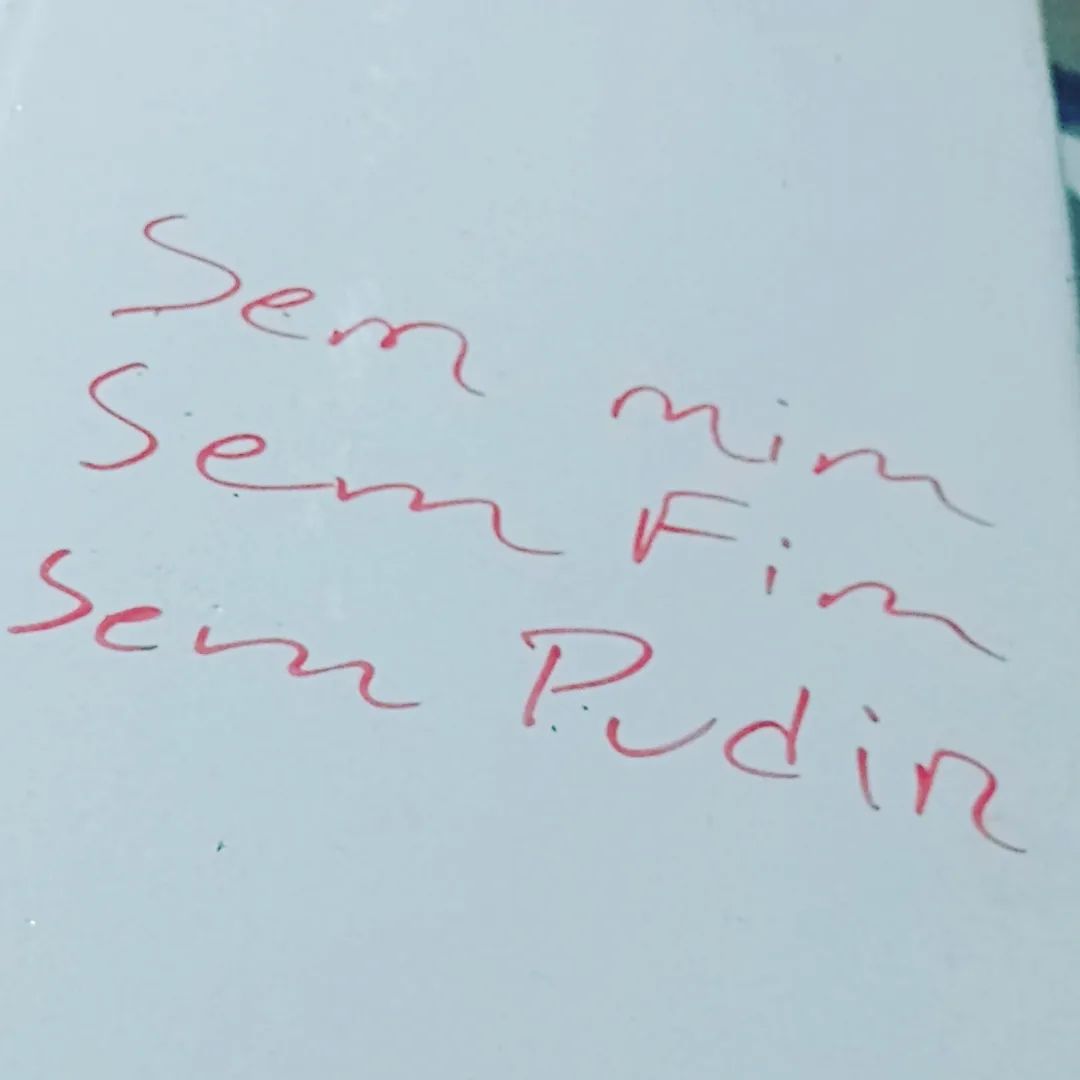 Sem mim
Sem Fim
Sem Pudin